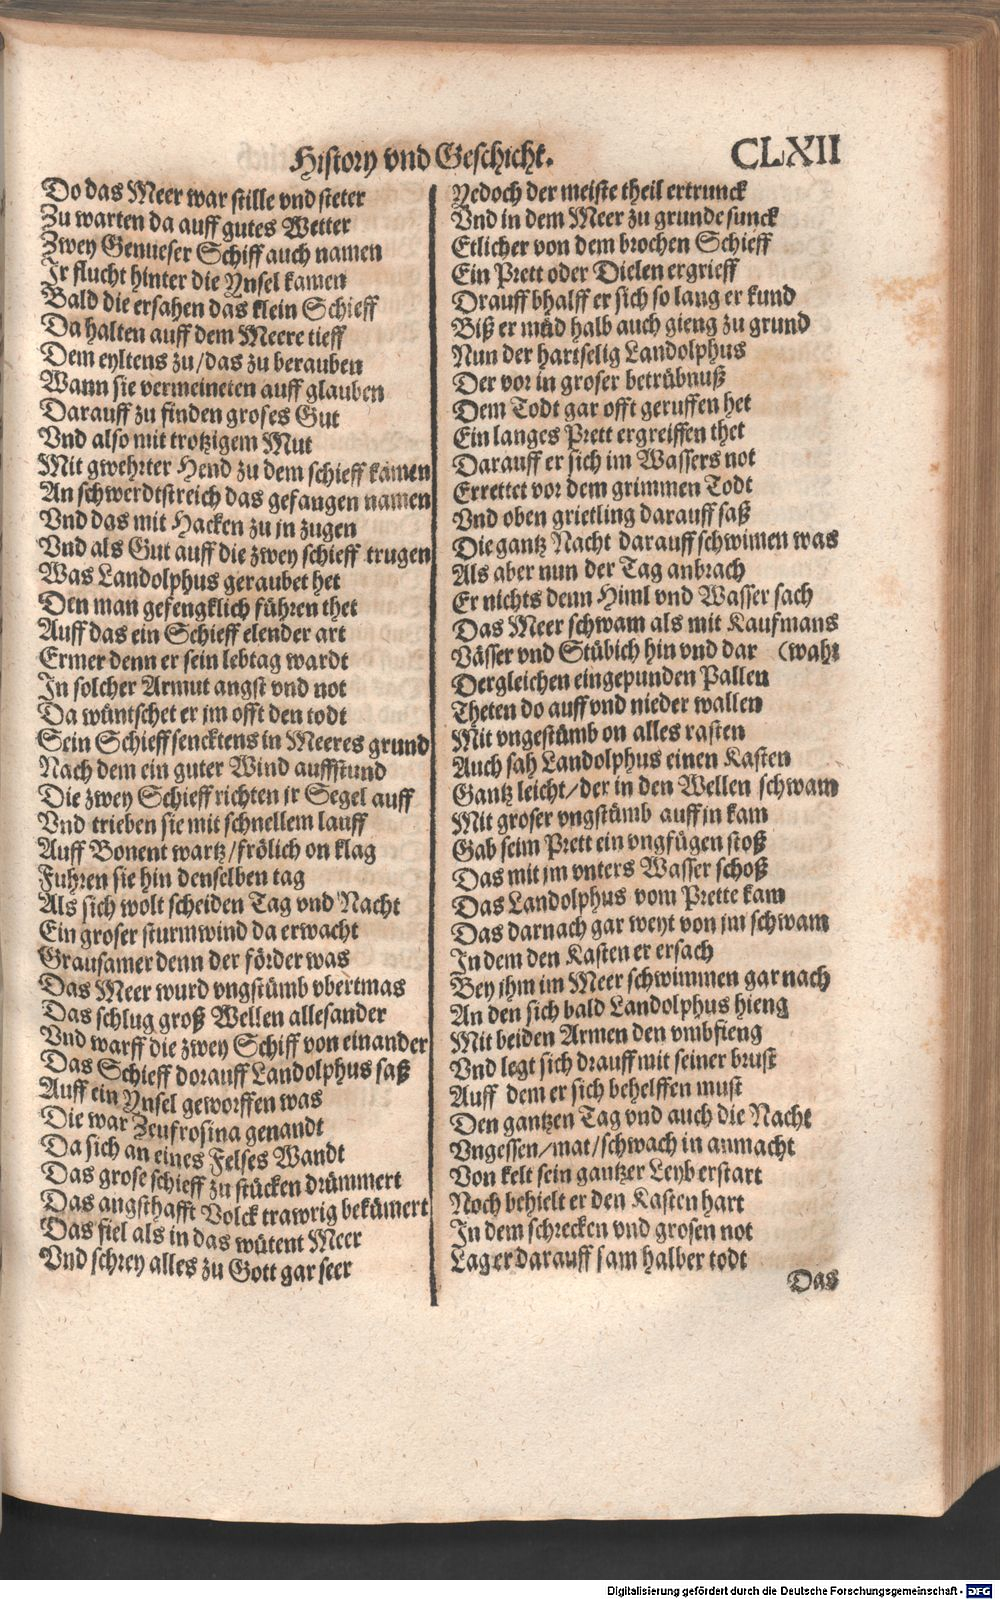 History vnd Geschicht. CLXII
Do das Meer war stille vnd steter
Zu warten da auff gutes Wetter
Zwey Genueser Schiff auch namen
Jr flucht hinter die Ynsel kamen
Bald die ersahen das klein Schieff
Da halten auff dem Meere tieff
Dem eyltens zu/das zu berauben
Wann sie vermeineten auff glauben
Darauff zu finden groses Gut
Vnd also mit trotzigem Mut
Mit gwehrter Hend zu dem schieff kamen
An schwerdtstreich das gefangen namen
Vnd das mit Hacken zu jn zugen
Vnd als Gut auff die zwey schieff trugen
Was Landolphus geraubet het
Den man gefengklich führen thet
Auff das ein Schieff elender art
Ermer denn er sein lebtag wardt
In solcher Armut angst vnd not
Da wüntschet er jm offt den todt
Sein Schieff sencktens in Meeres grund
Nach dem ein guter Wind auffstund
Die zwey Schieff richten jr Segel auff
Vnd trieben sie mit schnellem lauff
Auff Bonent wartz/frölich on klag
Fuhren sie hin denselben tag
Als sich wolt scheiden Tag vnd Nacht
Ein groser sturmwind da erwacht
Grausamer denn der förder was
Das Meer wurd vngstümb vbertmas
Das schlug groß Wellen allesander
Vnd warff die zwey Schiff von einander
Das Schieff dorauff Landolphus saß
Auff ein Ynsel geworffen was
Die war Zeufrosina genandt
Da sich an eines Felses Wandt
Das grose schieff zu stücken drümmert
Das angsthafft Volck trawrig bekümert
Das fiel als in das wütent Meer
Vnd schrey alles zu Gott gar seer
Yedoch der meiste theil ertrunck
Vnd in dem Meer zu grunde sunck
Etlicher von dem brochen Schieff
Ein Prett oder Dielen ergrieff
Drauff bhalff er sich so lang er kund
Biß er müd halb auch gieng zu grund
Nun der hartselig Landolphus
Der vor in groser betrübnuß
Dem Todt gar offt geruffen het
Ein langes Prett ergreiffen thet
Darauff er sich im Wassers not
Errettet vor dem grimmen Todt
Vnd oben grietling darauff saß
Die gantz Nacht darauff schwimen was
Als aber nun der Tag anbrach
Er nichts denn Himl vnd Wasser sach
Das Meer schwam als mit Kaufmans
Vässer vnd Stübich hin vnd dar (wahr
Dergleichen eingepunden Pallen
Theten do auff vnd nieder wallen
Mit vngestümb on alles rasten
Auch sah Landolphus einen Kasten
Gantz leicht/der in den Wellen schwam
Mit groser vngstümb auff jn kam
Gab seim Prett ein vngfügen stoß
Das mit jm vnters Wasser schoß
Das Landolphus vom Prette kam
Das darnach gar weyt von jm schwam
In dem den Kasten er ersach
Bey jhm im Meer schwimmen gar nach
An den sich bald Landolphus hieng
Mit beiden Armen den vmbfieng
Vnd legt sich drauff mit seiner brust
Auff dem er sich behelffen must
Den gantzen Tag vnd auch die Nacht
Vngessen/mat/schwach in anmacht
Von kelt sein gantzer Leyb erstart
Noch behielt er den Kasten hart
In dem schrecken vnd grosen not
Lag er darauff sam halber todt
Das
Digitalisierung gefördert durch die Deutsche Forschungsgemeinschaft - DFG